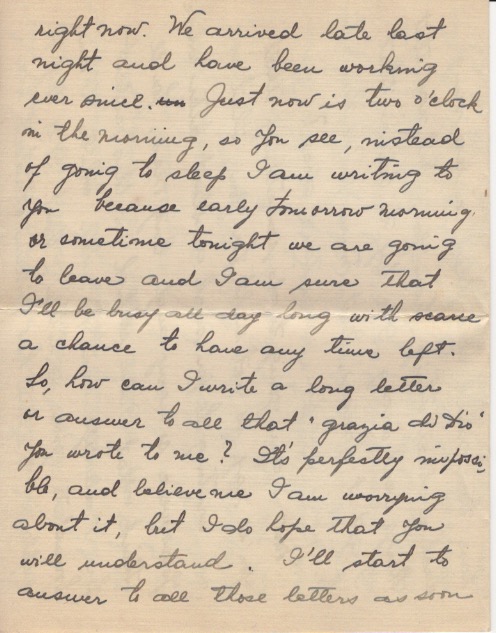 right now. We arrived late last
night and have been working
ever since. Just now is two o'clock
in the morning, so you see, instead
of going to sleep I am writing to
you because early tomorrow morning
or sometime tonight we are going
to leave and I am sure that
I'll be busy all day long with scarce
a chance to have any time left.
So, how can I write a long letter
or answer to all that "grazia di Dio"
you wrote to me? It's perfectly impossi-
ble, and believe me I am worrying
about it, but I do hope that you
will understand. I'll start to
answer to all those letters as soon